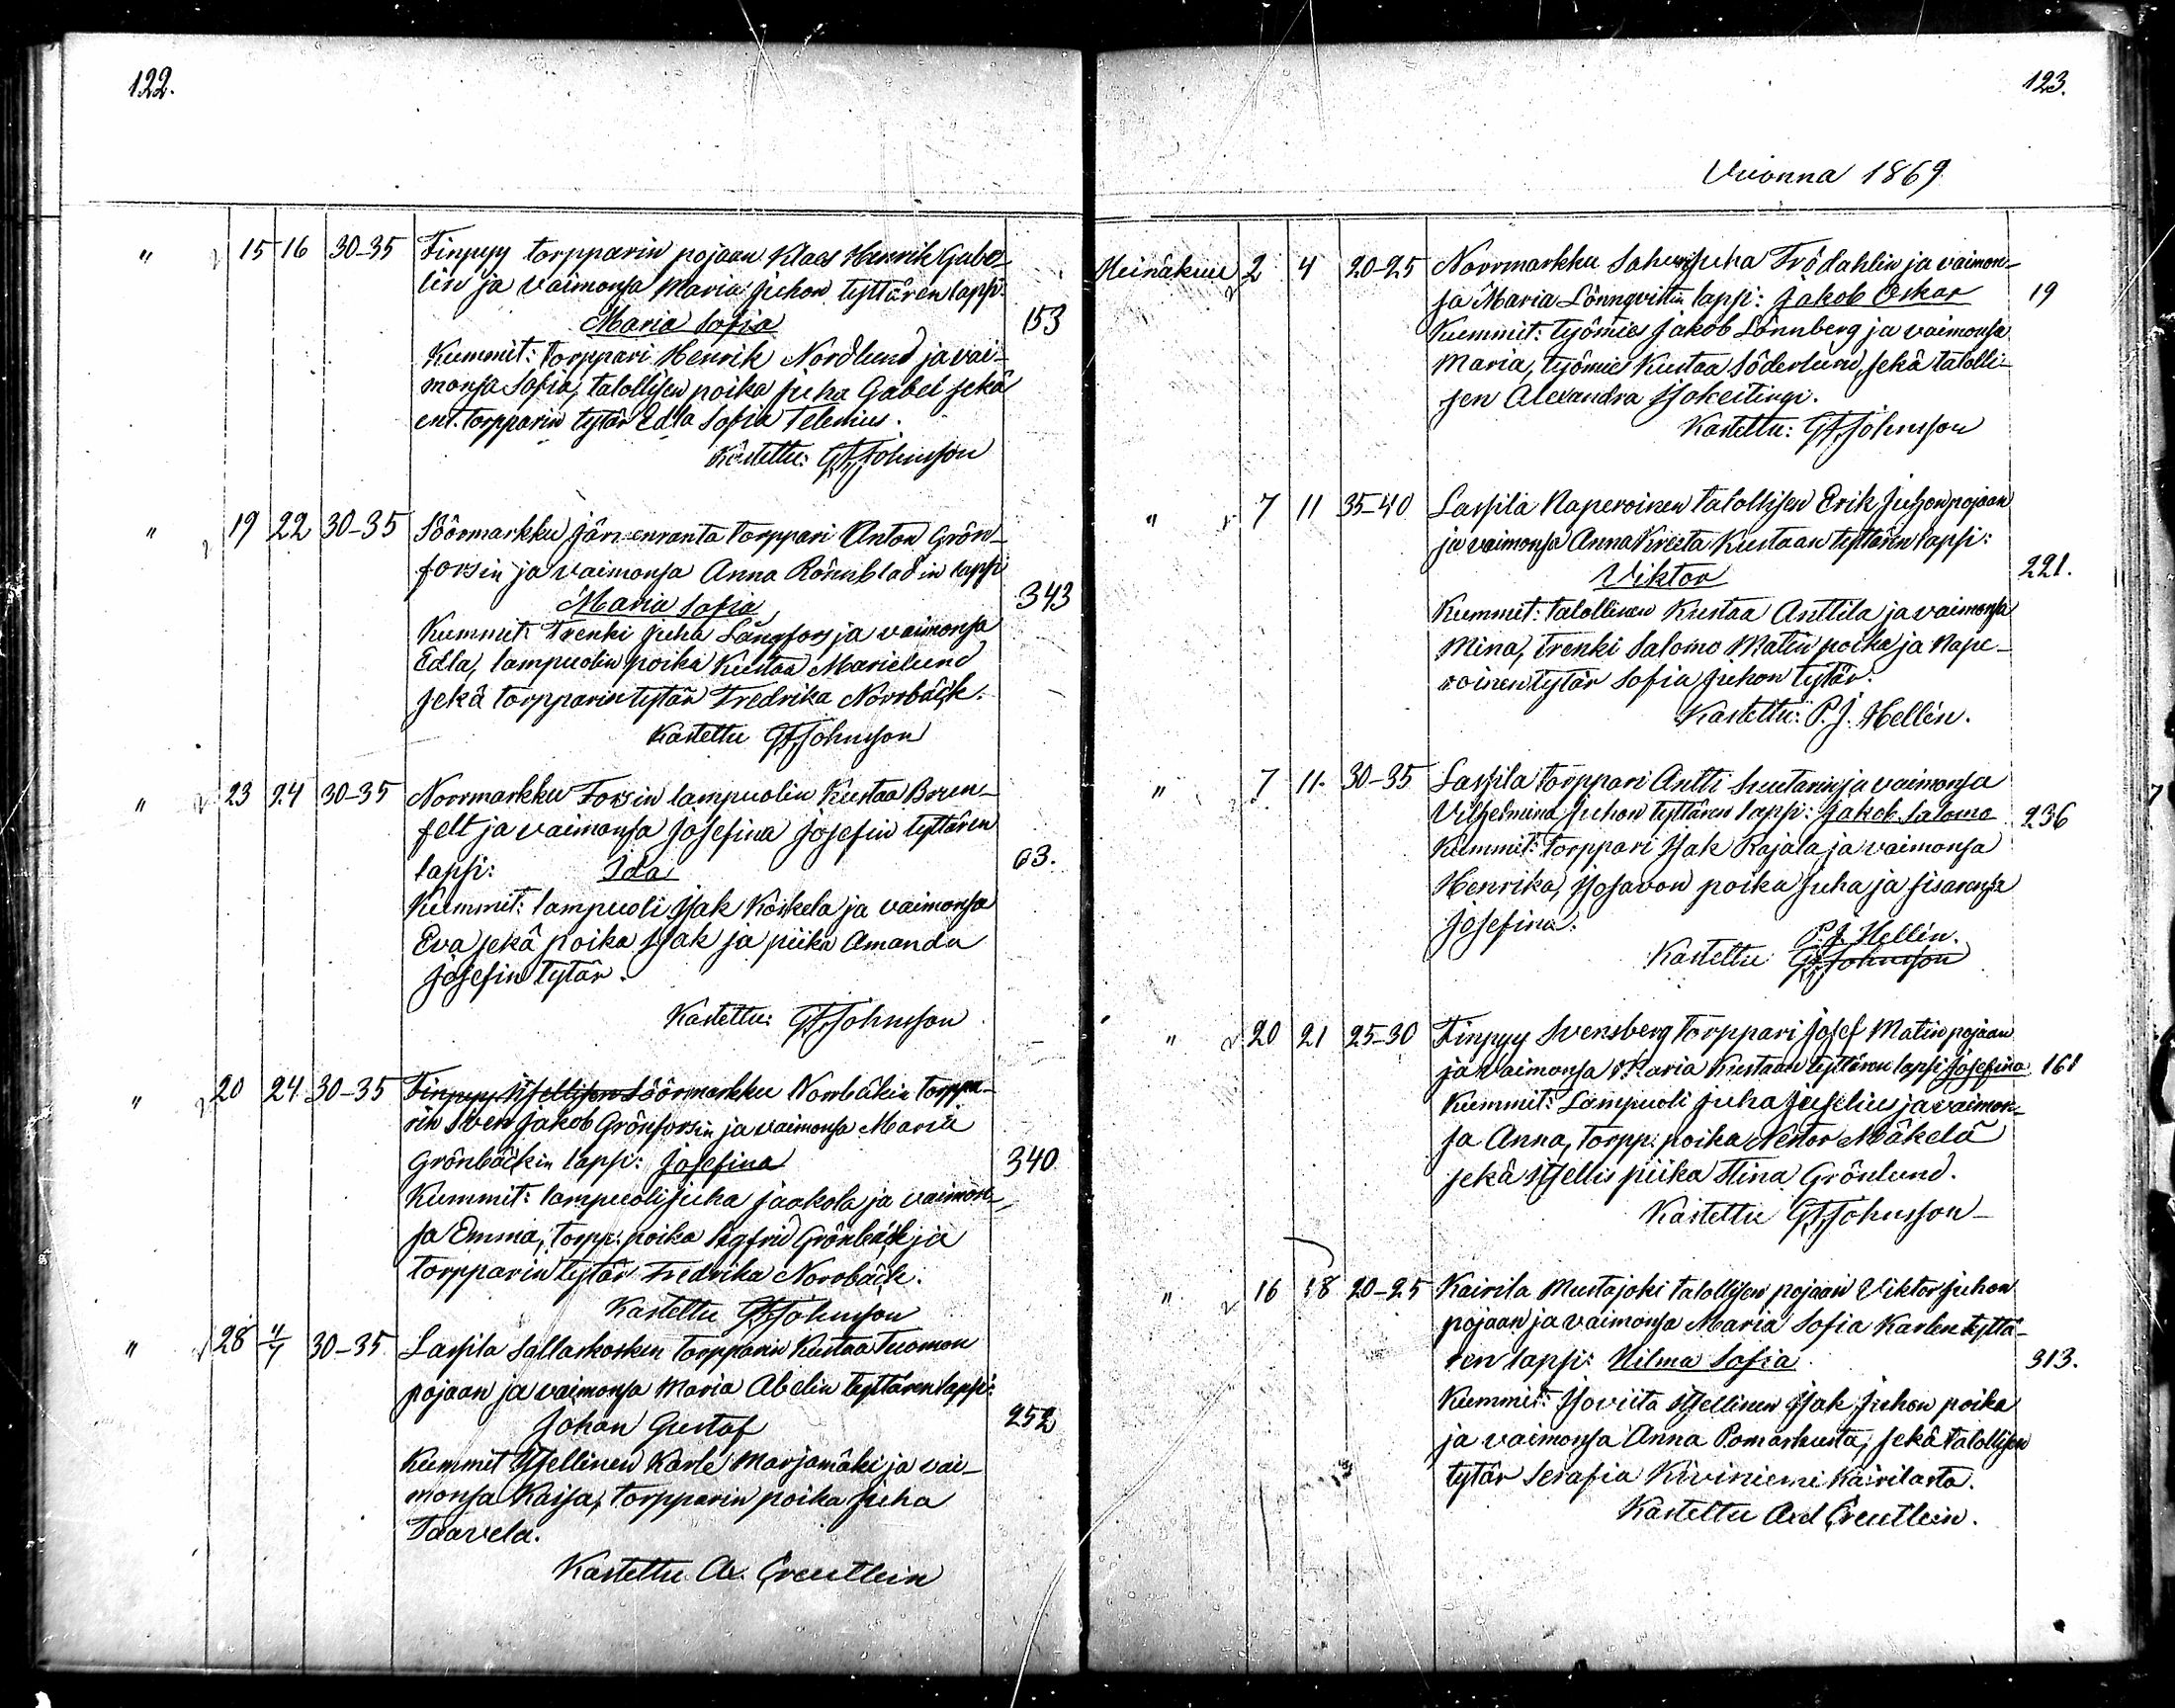 122.
" 15 16 30-35 Finpyy torpparin pojaan Klaes Henrik Gabe-
lin ja vaimonsa Maria Juhon tyttären lapsi:
Maria Sofia 153
Kummit: torppari Henrik Nordlund ja vai-
monsa Sofia, talollisen poika Juha Gabel sekä
ent. torpparin tytär Edla Sofia Telenius.
Kastettu: G.F. Johnsson
" 19 22 30-35 Söörmarkku Järvenranta torppari Anton Grön-
forsin ja vaimonsa Anna Rönnbladin lapsi
Maria Sofia 343
Kummit: Trenki Juha Långfors ja vaimonsa
Edla, lampuolin poika Kustaa Marielund
sekä torpparin tytär Fredrika Norrbäck.
Kastettu G.F. Johnsson
" 23 24 30-35 Noormarkku Forsin lampuolin Kustaa Boren-
felt ja vaimonsa Josefina Josefin tyttären
lapsi: Ida 63.
Kummit: lampuoli Isak Koskela ja vaimonsa
Eva sekä poika Isak ja piika Amanda
Josefin tytär.
Kastettu: G.F. Johnsson
" 20 24 30-35 Finpyy Itsellisen Söörmarkku Norrbäkin torppa-
rin Sven Jakob Grönforsin ja vaimonsa Maria
Grönbäckin lapsi: Josefina 340
Kummit: lampuoli Juha Jaakola ja vaimon-
sa Emma, torpp. poika Sigfrid Grönbäck ja
torpparin tytär Fredrika Norrbäck.
Kastettu G.F. Johnsson
" 28 4/7 30-35 Lassila Sallarkosken torpparin Kustaa Tuomon
pojaan ja vaimonsa Maria Abelin tyttären lapsi:
Johan Gustaf 252
Kummit Itsellinen Karle Marjamäki ja vai-
monsa Kaisa, torpparin poika Juha
Taavela.
Kastettu Ax. Creutlein
123.
Vuonna 1869
Heinäkuu 2 4 20-25 Noormarkku Juha Frödahlin ja vaimon-
sa Maria Lönnqvistin lapsi: Jakob Oskar 19
Kummit: työmies Jakob Lönnberg ja vaimonsa
Maria, työmies Kustaa Söderlund, sekä talolli-
sen Alexandra Isokeitingi.
Kastettu: G.F. Johnsson
" 7 11 35-40 Lassila Naperoinen talollisen Erik Juhon pojaan
ja vaimonsa Anna Kreeta Kustaan tyttären lapsi:
Viktor 221.
Kummit: talollinen Kustaa Anttila ja vaimonsa
Mina, trenki Salomo Matin poika ja Nape-
roinen tytär Sofia Juhon tytär.
Kastettu: P.J. Hellén.
" 7 11. 30-35 Lassila torppari Antti Suutarin ja vaimonsa
Vilhelmina Juhon tyttären lapsi: Jakob Salomo 236
Kummit: torppari Isak Rajala ja vaimonsa
Henrika, Isosavon poika Juha ja sisarensa
Josefina.
P.J. Hellén.
Kastettu G.F. Johnsson
" 20 21 25-30 Finpyy Svensberg torppari Josef Matin pojaan
ja vaimonsa Maria Kustaan tyttären lapsi Josefina 161
Kummit: Lampuoli Juha Juselius ja vaimon-
sa Anna, torpp. poika Nestor Mäkelä
sekä itsellis piika Stina Grönlund.
Kastettu G.F. Johnsson
" 16 18 20-25 Kairila Mustajoki talollisen pojaan Viktor Juhon
pojaan ja vaimonsa Maria Sofia Karlen tyttä-
ren lapsi: Hilma Sofia 313.
Kummit: Isoviita itsellinen Isak Juhon poika
ja vaimonsa Anna Pomarkusta, sekä talollisen
tytär Serafia Kiviniemi Kairilasta.
Kastettu Axel Creutlein.